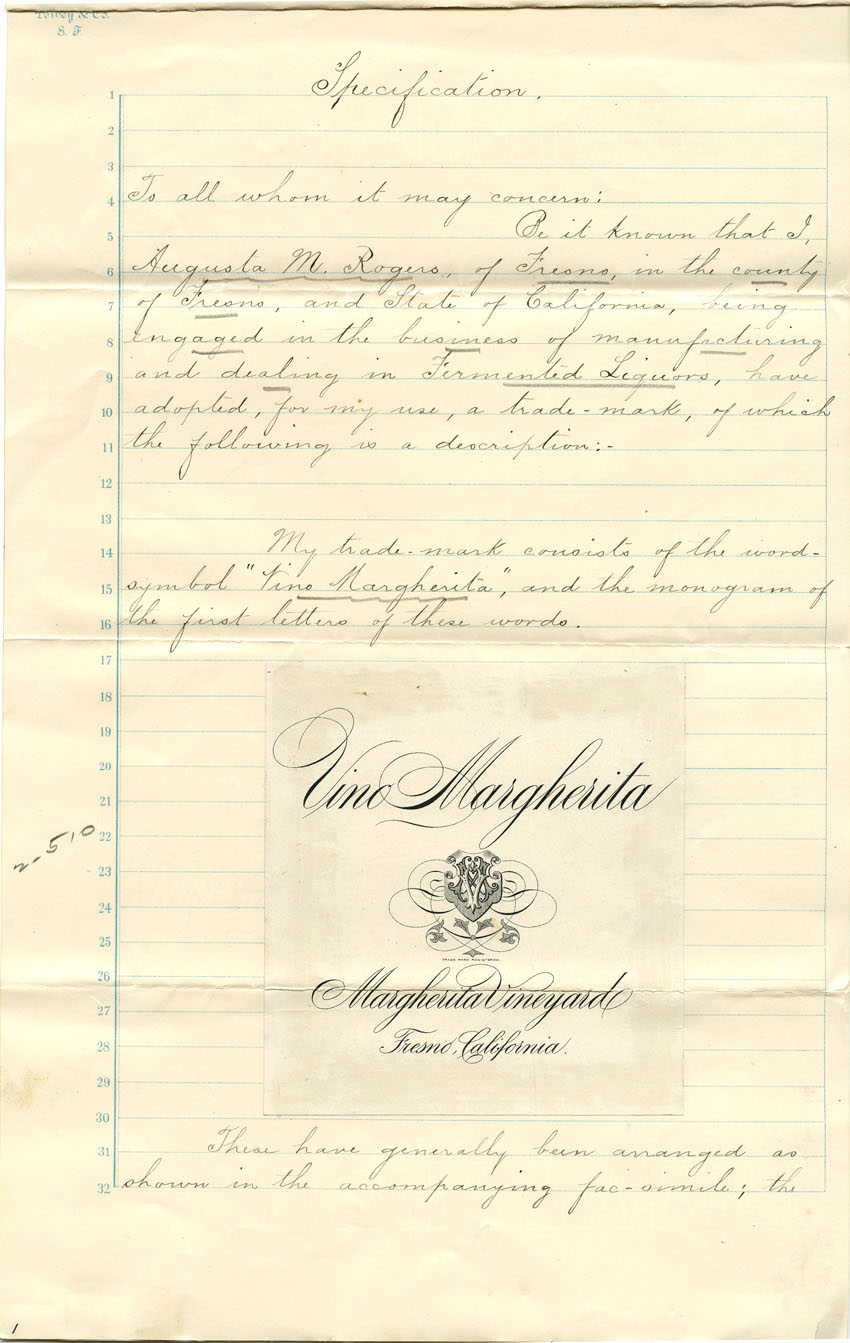 Dewey & Co.
S. F.
Specification.
1
2
3
4 To all whom it may concern:
5 Be it known that I,
6 Augusta M. Rogers, of Fresno, in the county
7 of Fresno, and State of California, being
8 engaged in the business of manufacturing
9 and dealing in Fermented Liquors, have
10 adopted, for my use, a trade-mark, of which
11 the following is a description:-
12
13
14 My trade-mark consists of the word-
15 symbol "Vino Margherita", and the monogram of
16 the first letters of these words.
17
18
19
20
21
22
23
24
25
26
27
28
29
30
2-5'0
Vino Margherita
VM
TRADE MARK REGISTERED.
Margherita Vineyard
Fresno, California.
31 These have generally been arranged as
32 shown in the accompanying fac-simile; the
1